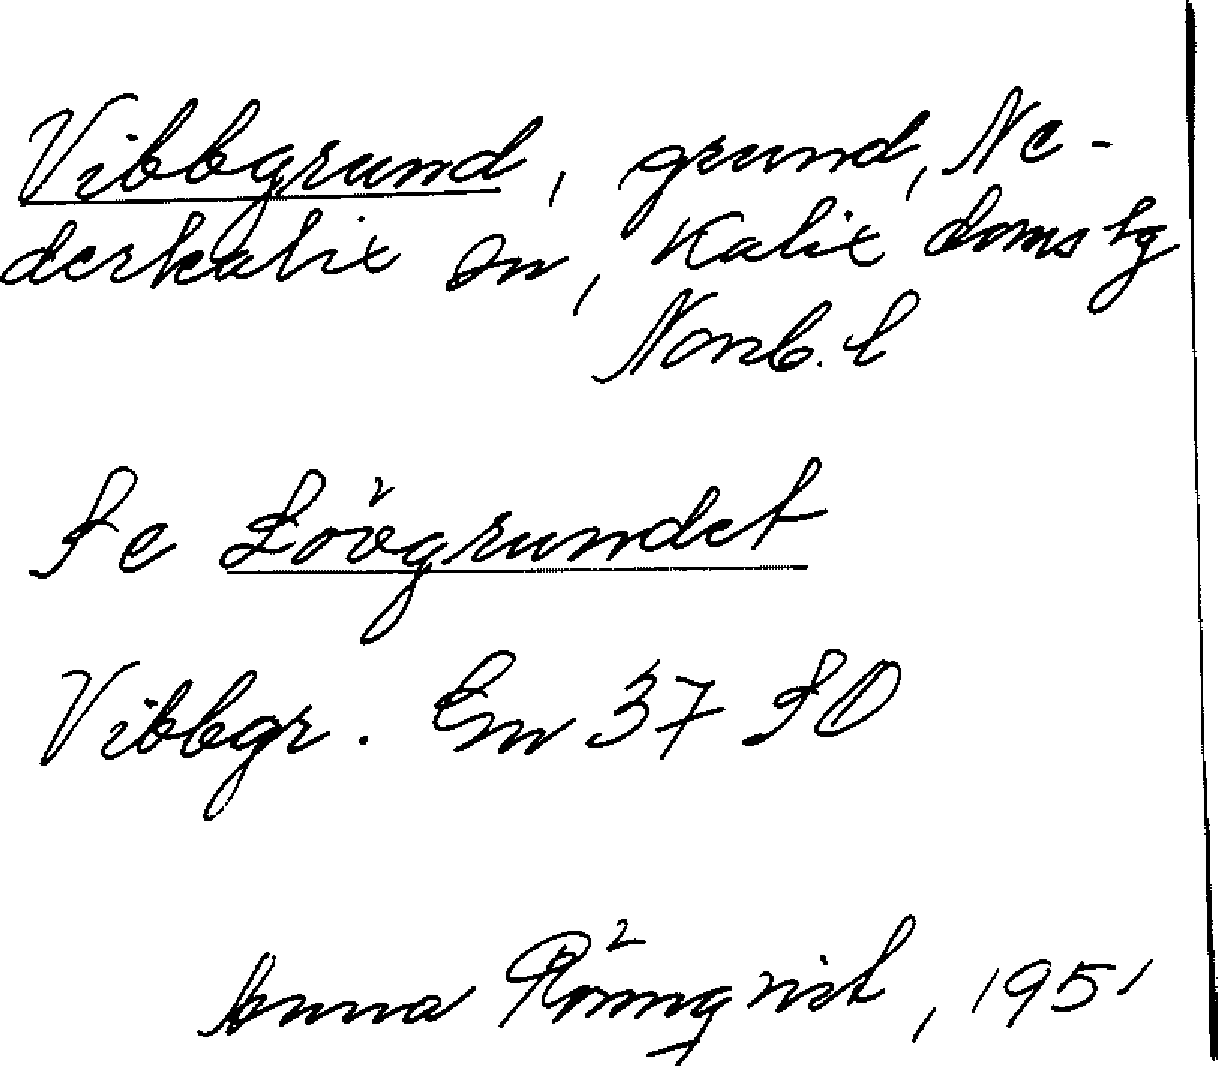 Vibbgrund, grund, Ne-
derkalix sn, Kalix doms lg
Norrb. l
Se Lövgrundet
Vibbgr. En 37 SO
Anna Rönnqvist, 1951